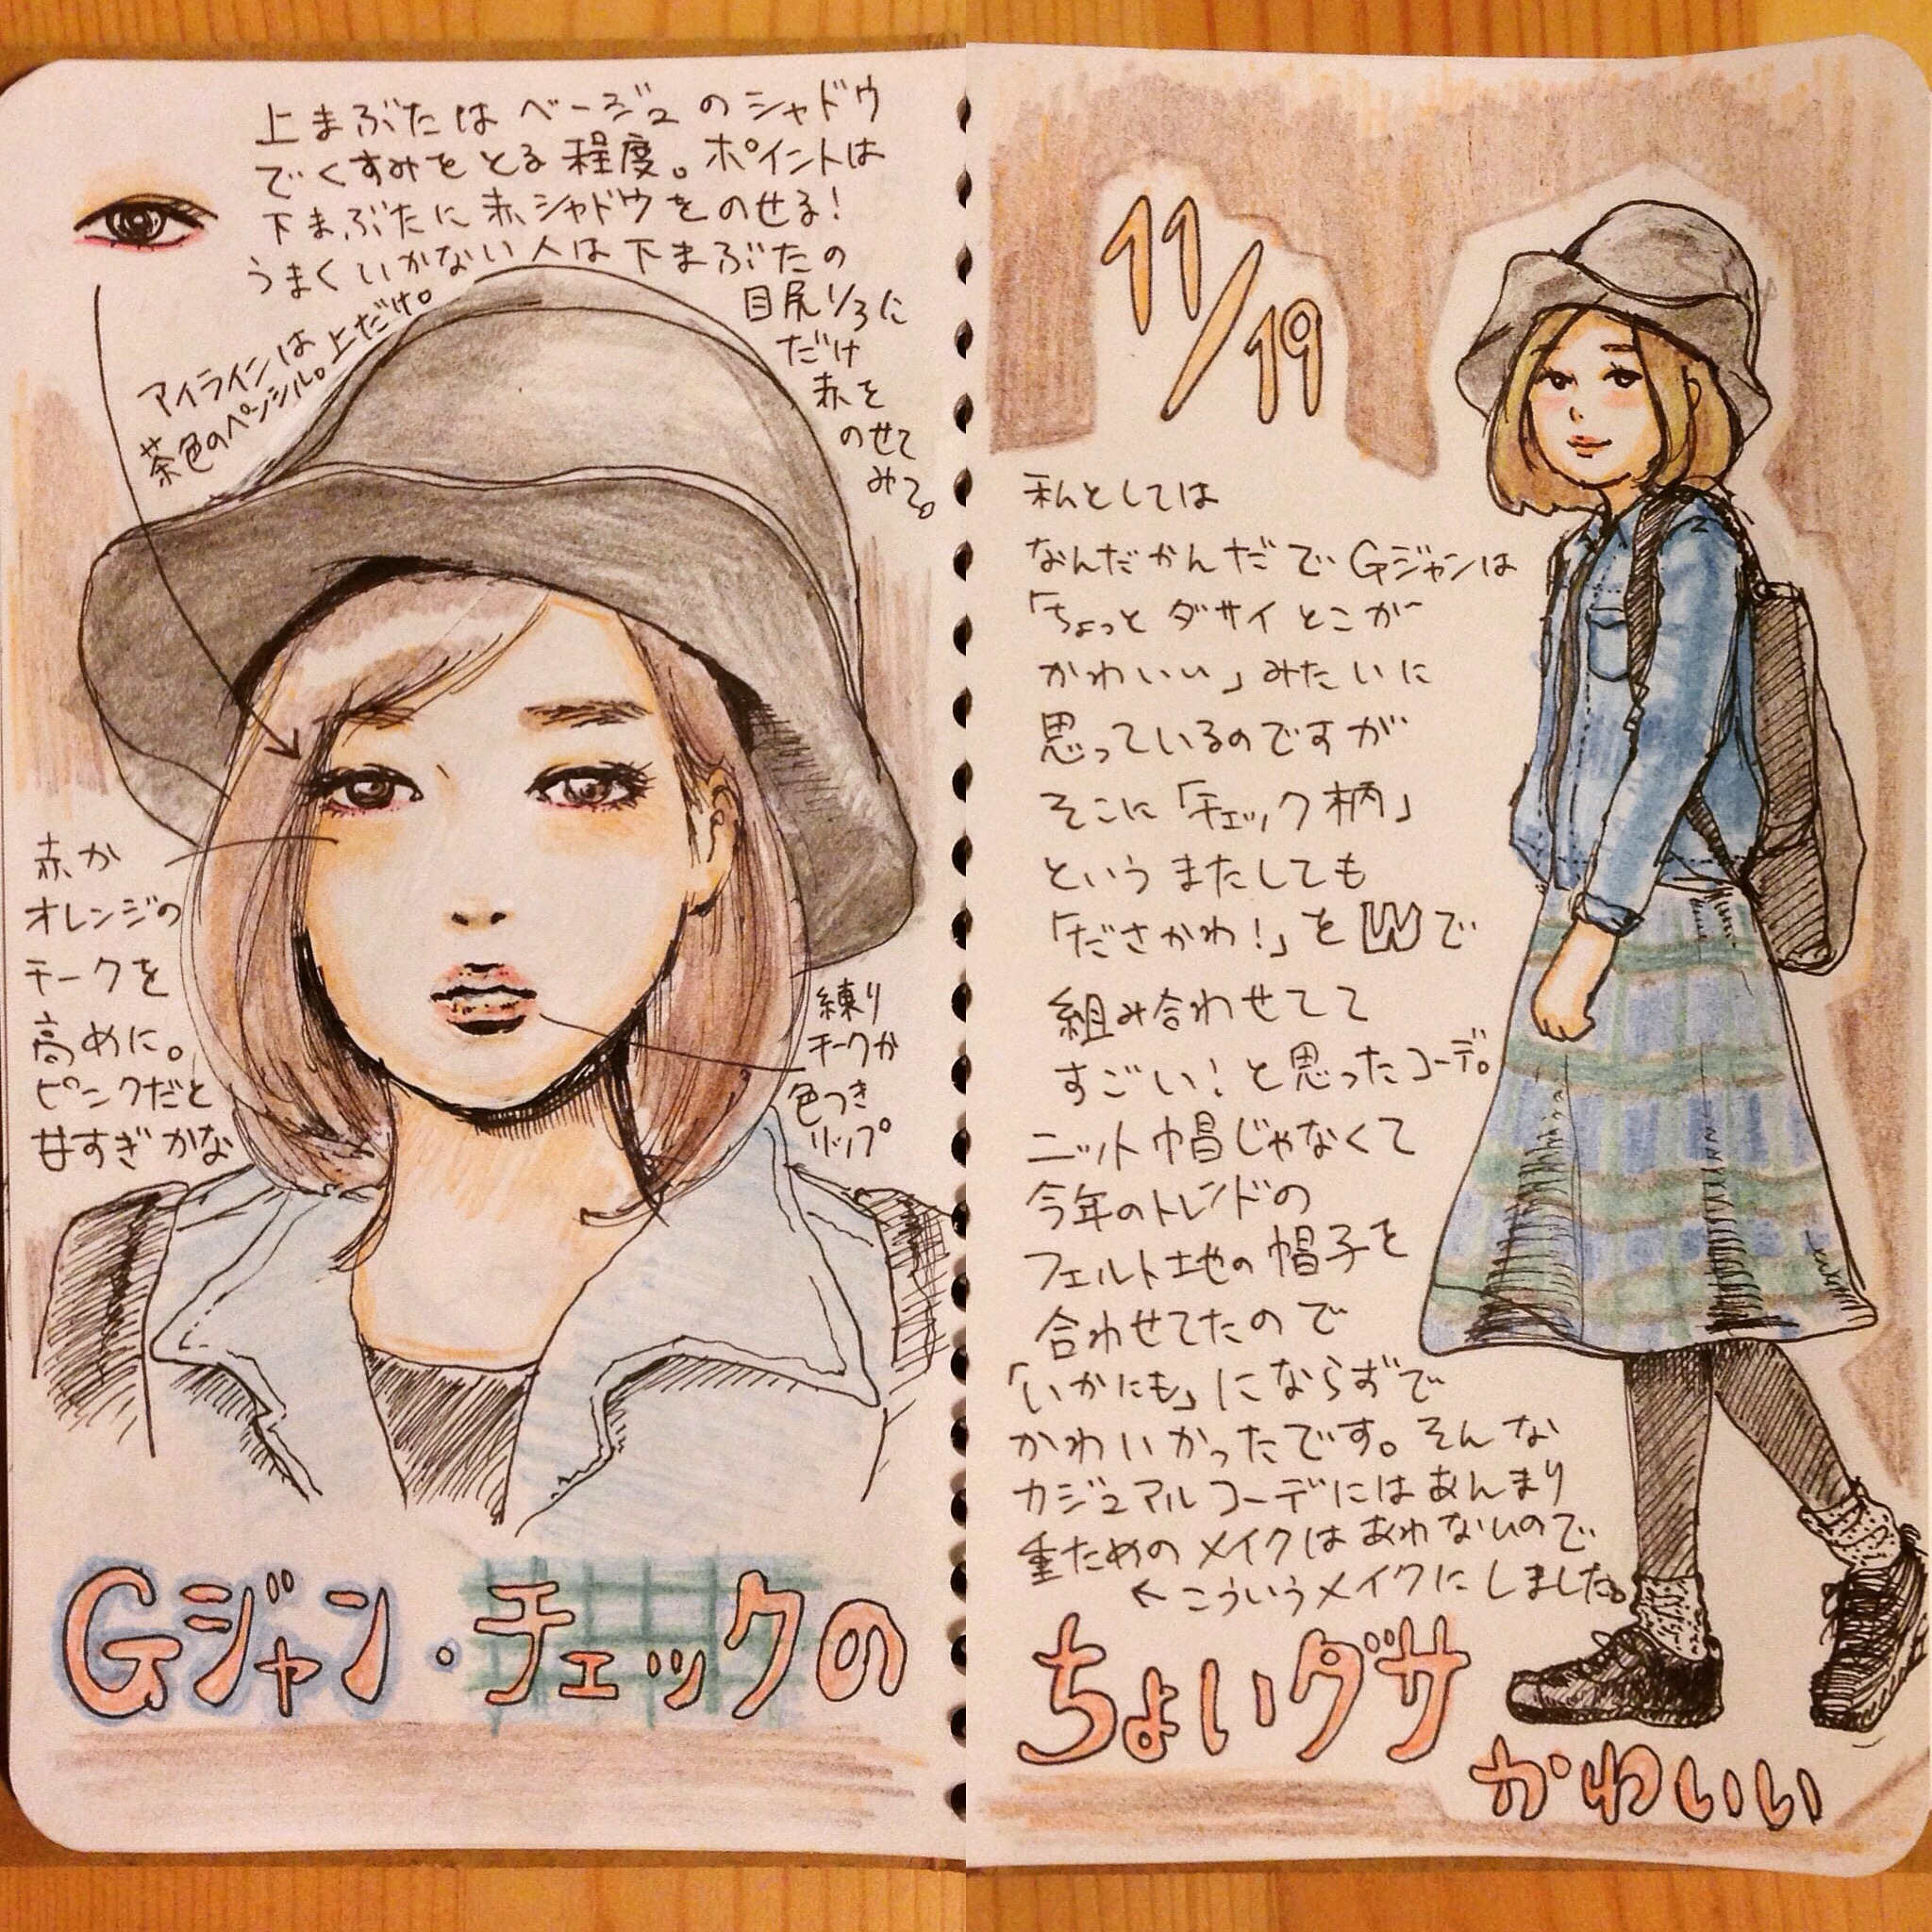 上まぶたは ベージュ の シャドウ
でくすみを とる 程度。ポイントは
下まぶたに 赤シャドウを のせる!
うまく いかない 人は 下まぶたの
目尻1/3に
だけ
赤を
のせて
みて。
アイラインは
茶色のペンシル。上だけ。
赤か
オレンジの
チークを
高めに。
ピンクだと
甘すぎ かな
練り
チークか
色つき
リップ
Gジャン・チェックの
11/19
私としては
なんだかんだで Gジャンは
「ちょっと ダサイ とこが
かわいい」みたいに
思っているのですが
そこに「チェック柄」
という またしても
「ださかわ!」を Wで
組み合わせてて
すごい! と思ったコーデ。
ニット帽じゃなくて
今年のトレンドの
フェルト地の 帽子を
合わせてたので
「いかにも」にならずで
かわいかったです。そんな
カジュアル コーデにはあんまり
重ための メイクは あわないので
←こういうメイクに しました。
ちょいダサ
かわいい